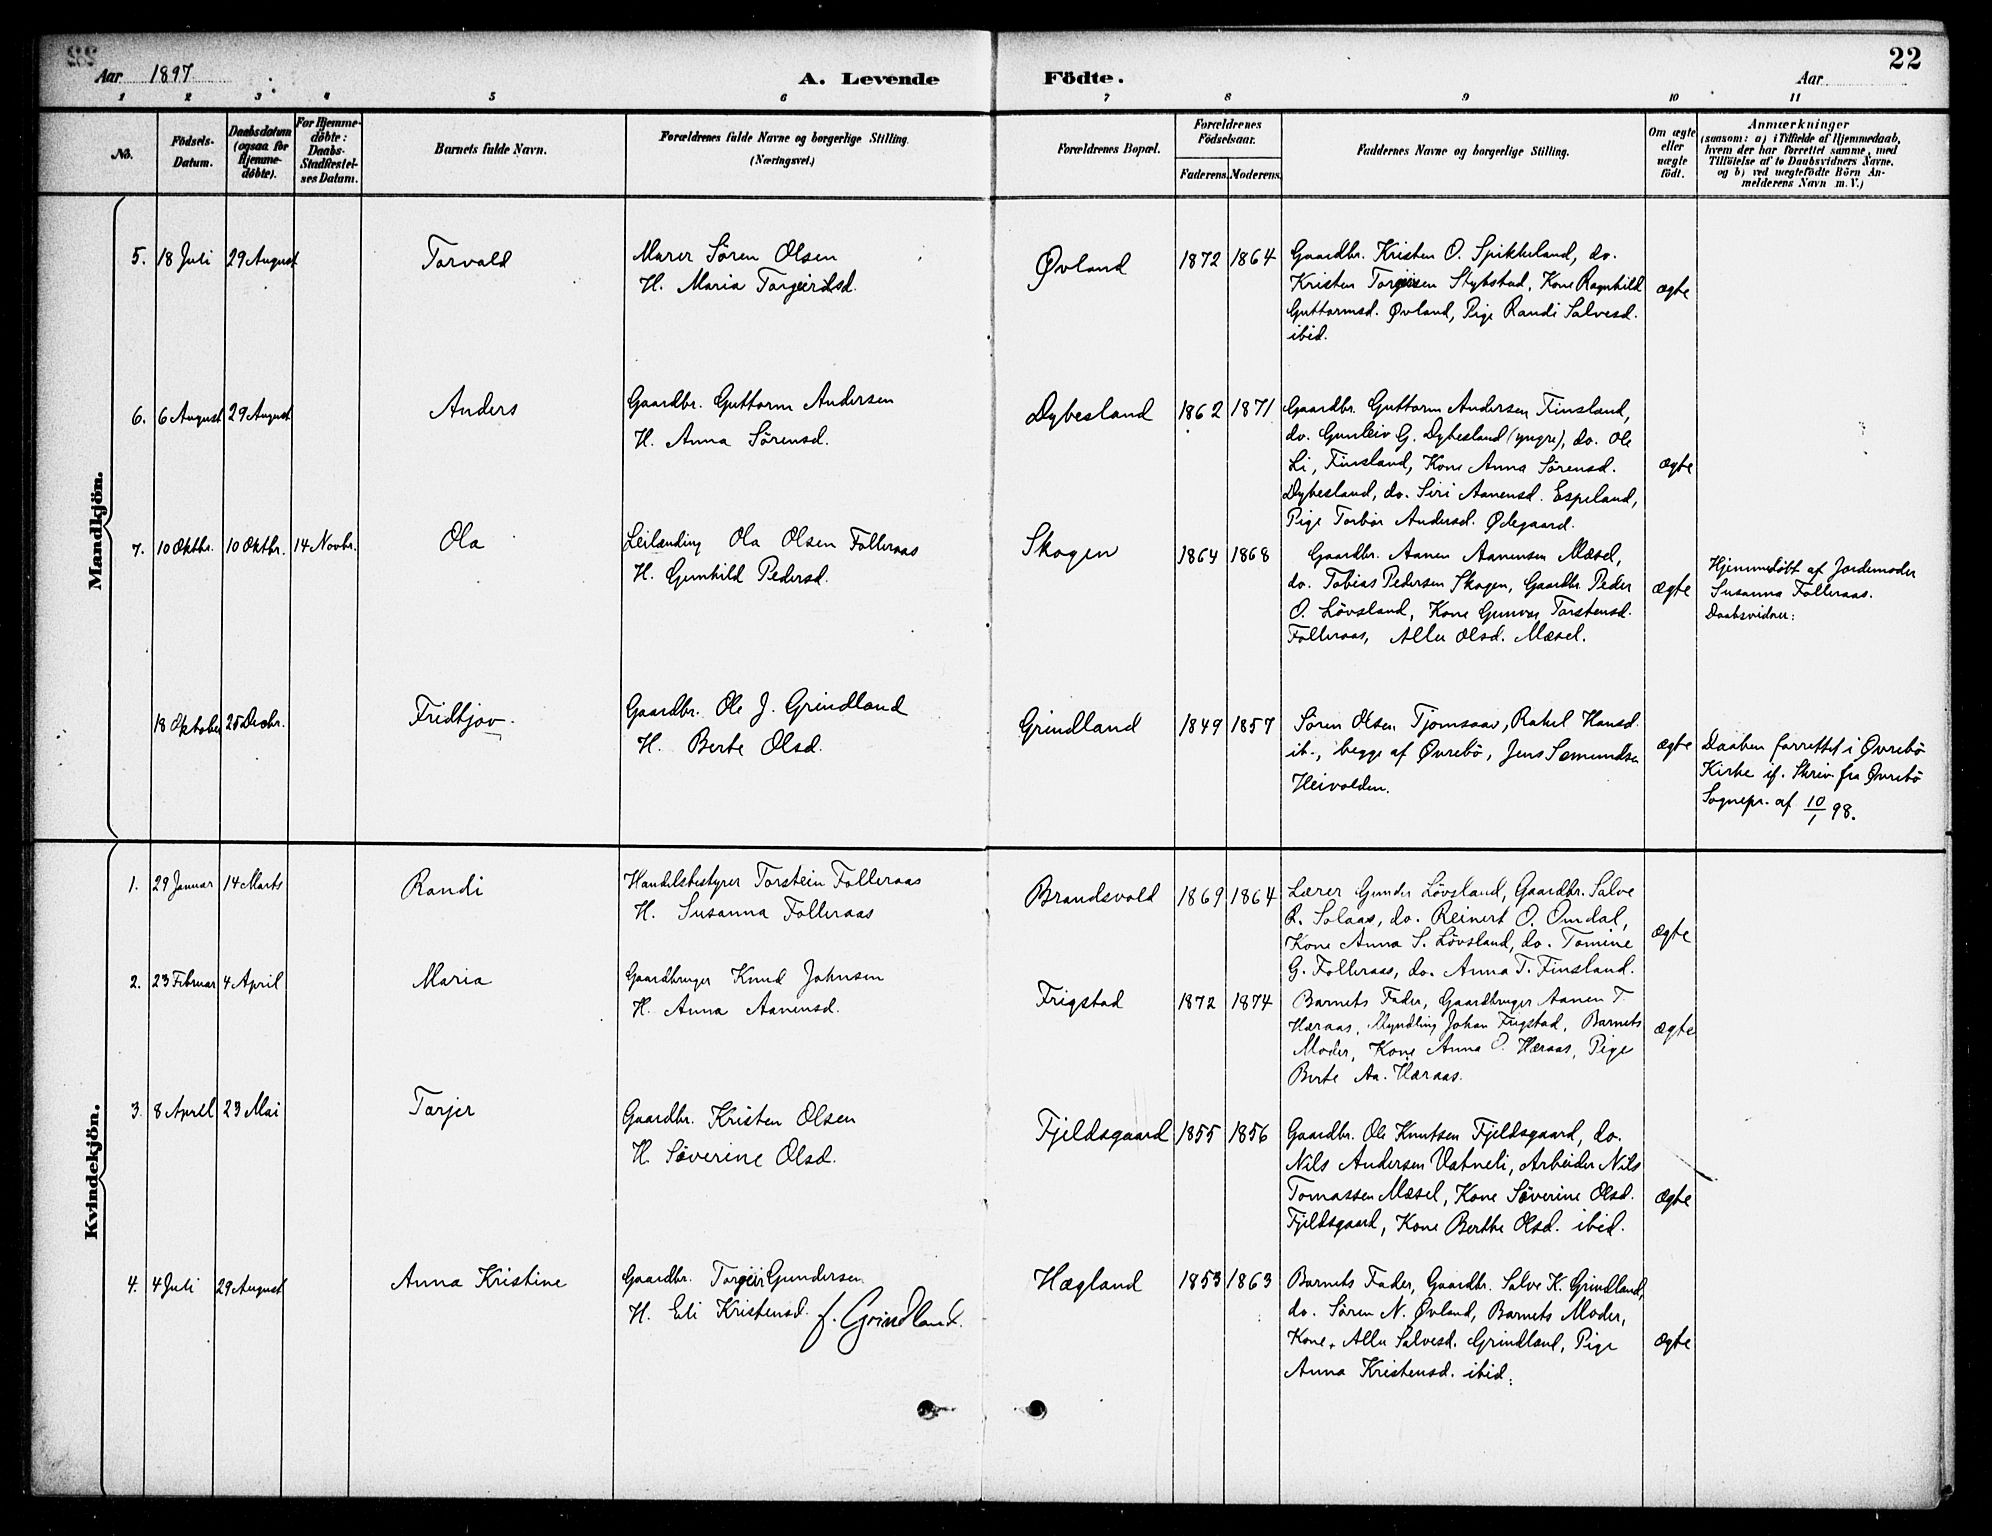 22
Aar 1897
A. Levende Födte.
Aar
1 2 3 4 5 6 7 8 9 10 11
No.
Födsels-
Datum.
Daabsdatum
(ogsaa for
Hjemme-
döbte).
For Hjemme-
döbte:
Daabs-
Stadfæstel-
ses Datum.
Barnets fulde Navn.
Forældrenes fulde Navne og borgerlige Stilling.
(Næringsvei.)
Forældrenes Bopæl.
Forældrenes
Födselsaar.
Faderens. Moderens.
Faddernes Navne og borgerlige Stilling.
Om ægte
eller
uægte
födt.
Anmærkninger
(saasom: a) i Tilfælde af Hjemmedaab,
hvem der har forrettet samme, med
Tilföielse af to Daabsvidners Navne,
og b) ved uægtefödte Börn An-
melderens Navn m. V.)
Mandkjön.
5. 18 Juli 29 August Torvald
Murer Sören Olsen
H. Maria Torgeirdsd.
Øvland 1872 1864
Gaardbr. Kristen O. Spikkeland, do.
Kristen Torgeirsen Stybstad, Kone Ragnhild
Guttormsd. Øvland, Pige Randi Salvesd.
ibid.
ægte
6. 6 August 29 August Anders
Gaardbr. Guttorm Andersen
H. Anna Sörensd.
Dybesland 1862 1871
Gaardbr. Guttorm Andersen Finsland,
do. Gunleiv G. Dybesland (yngre), do. Ole
Li, Finsland, Kone Anna Sörensd.
Dybesland, do. Siri Aanensd. Espeland,
Pige Torbör Andersd. Ødegaard.
ægte
7. 10 Oktbr. 10 Oktbr. 14 Novbr. Ola
Leilænding Ola Olsen Folleraas
H. Gunhild Pedersd.
Skogen 1864 1868
Gaardbr. Aanen Aanensen Mæsel,
do. Tobias Pedersen Skogen, Gaardbr. Peder
O. Lövsland, Kone Gunvor Torstensd.
Folleraas, Alles Olsd. Mæsel.
ægte
Hjemmedöbt af Jordemoder
Susanna Folleraas.
Daabsvidner:
18 Oktober 25 Decbr. Fridtjov.
Gaardbr. Ole J. Grindland
H. Berte Olsd.
Grindland 1849 1857
Sören Olsen Tjomsaas, Rakel Hansd.
ib., begge af Øvrebö, Jens Semundsen
Heivolden.
ægte
Daaben forrettet i Øvrebö
Kirke if. Skriv. fra Øvrebö
Sognepr. af 10/1 98.
Kvindekjön.
1. 29 Januar 14 Marts Randi
Handelsbestyrer Torstein Folleraas
H. Susanna Folleraas
Brandsvold 1869 1864
Lærer Gunder Lövsland, Gaardbr. Salve
R. Solaas, do. Reinert O. Omdal,
Kone Anna S. Lövsland, do. Tomine
G. Folleraas, do. Anna T. Finsland.
ægte
2. 23 Februar 4 April Maria
Gaardbruger Knud Johnsen
H. Anna Aanensd.
Frigstad 1872 1874
Barnets Fader, Gaardbruger Aanen T.
Hæraas, Myndling Johan Frigstad, Barnets
Moder, Kone Anna O. Hæraas, Pige
Berte Aa. Hæraas.
ægte
3. 8 April 23 Mai Torjer
Gaardbr. Kristen Olsen
H. Söverine Olsd.
Fjeldsgaard 1855 1856
Gaardbr. Ole Knutsen Fjeldsgaard, do.
Nils Andersen Vatneli, Arbeider Nils
Tomassen Mæsel, Kone Söverine Olsd.
Fjeldsgaard, Kone Berthe Olsd. ibid.
ægte
4. 4 Juli 29 August Anna Kristine
Gaardbr. Torgeir Gundersen
H. Eli Kristensd. f. Grindland.
Hægland 1853 1863
Barnets Fader, Gaardbr. Salve K. Grindland,
do. Sören N. Øvland, Barnets Moder,
Kone, Alles Salvesd. Grindland, Pige
Anna Kristensd. ibid.
ægte